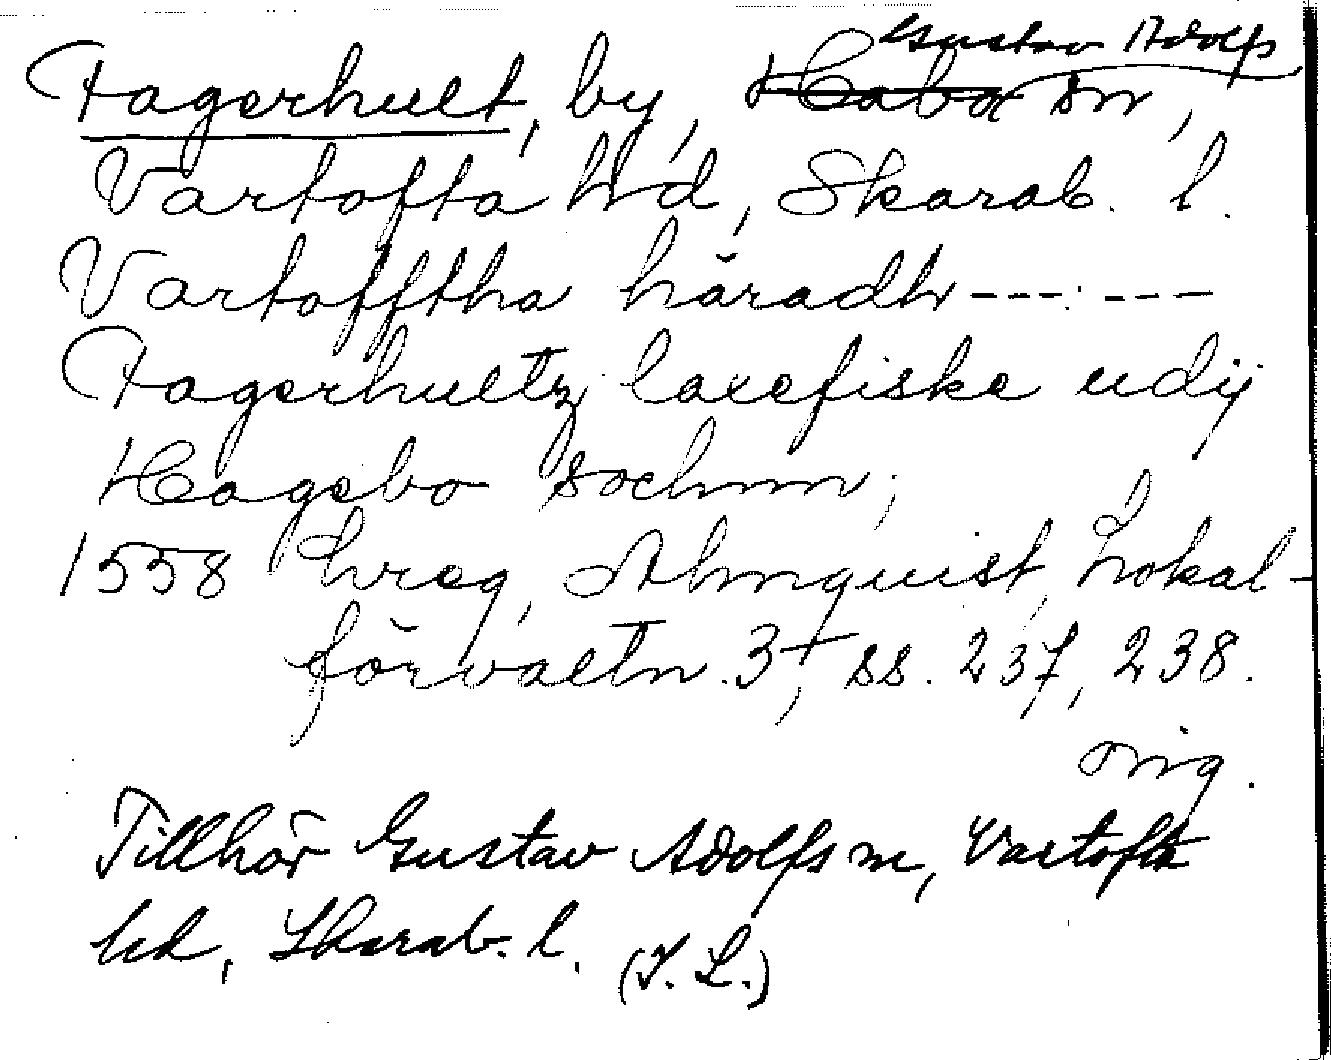 Gustav Adolfs
Fagerhult, by, Habo sn,
Vartofta hd, Skarab. l.
Vartofftha häradh-------
Fagerhultz laxefiske udij
Hagebo sochnn;
1558 hreg, Almquist, Lokal-
förvaltn. 3, ss. 237, 238.
orig.
Tillhör Gustav Adolfs sn, Vartofta
hd, Skarab. l. (I. L.)